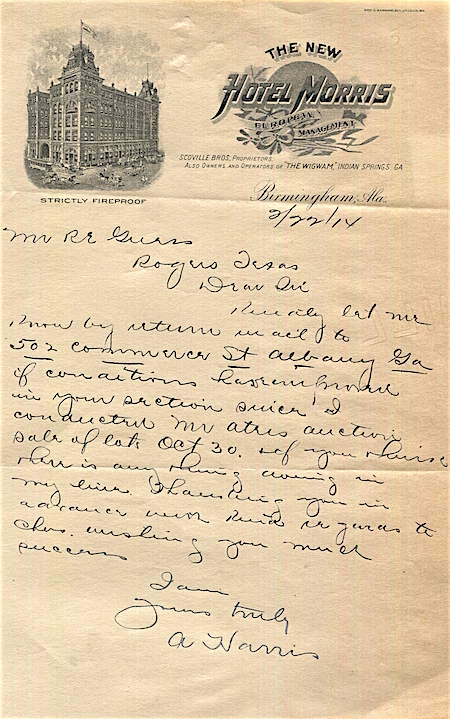 THE NEW
HOTEL MORRIS
EUROPEAN
MANAGEMENT
SCOVILLE BROS. PROPRIETORS.
ALSO OWNERS AND OPERATORS OF "THE WIGWAM," INDIAN SPRINGS, GA
STRICTLY FIREPROOF
Birmingham, Ala.
2/22/14
Mr R E
Rogers Texas
Dear Sir
Kindly let me
know by return mail to
502 commerce St Albany Ga
if conditions have improved
in your section since I
conducted Mr auction
sale of lots Oct 30. & if you think
there is any thing doing in
my line. Thanking you in
advance with kind regards to
Chas. wishing you much
success
I am
yours truly
A Harris